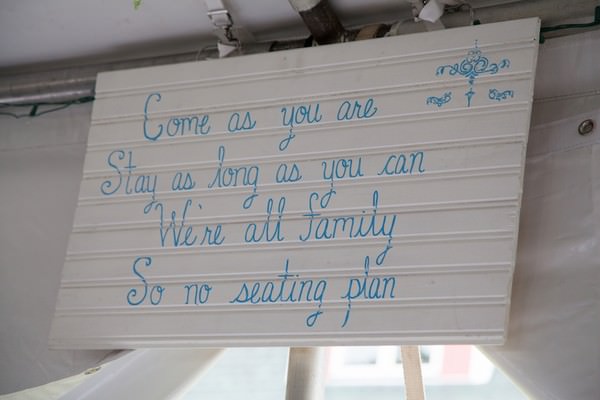 Come as you are
Stay as long as you can
We're all family
So no seating plan